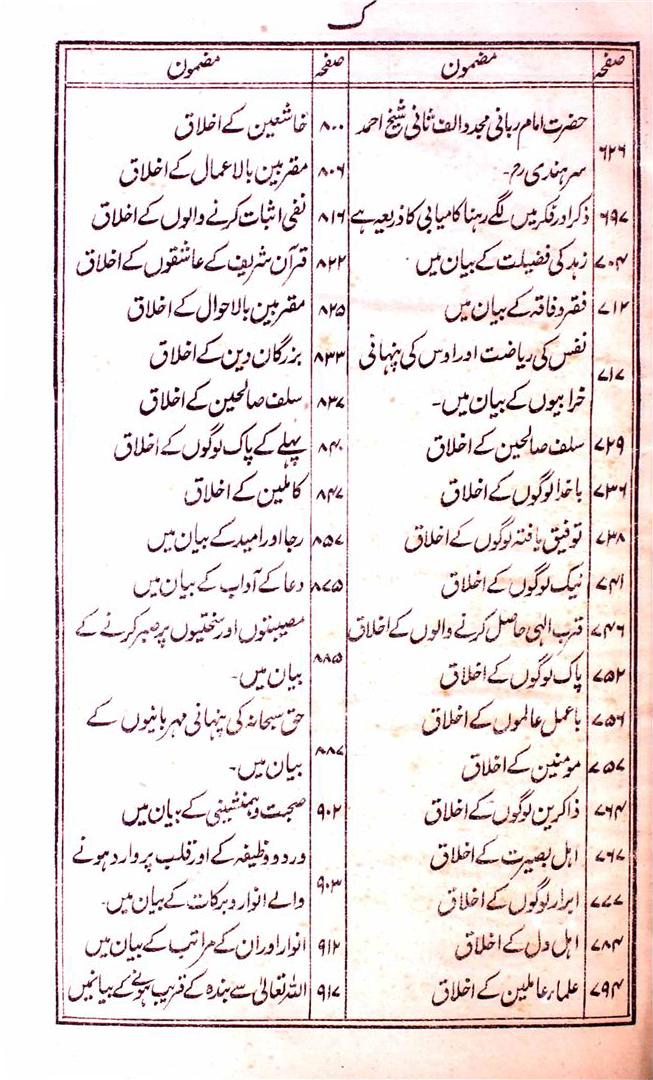 ک
صفحہ مضمون
۶۲۶ حضرت امام ربانی مجدد الف ثانی شیخ احمد
سرہندی رح۔
۶۹۷ ذکر اور فکر میں لگے رہنا کامیابی کا ذریعہ ہے
۷۰۴ زہد کی فضیلت کے بیان میں
۷۱۲ فقر و فاقہ کے بیان میں
۷۱۷ نفس کی ریاضت اور اوس کی پنہانی
خرابیوں کے بیان میں۔
۷۲۹ سلف صالحین کے اخلاق
۷۳۶ باخدا لوگوں کے اخلاق
۷۳۸ توفیق یافتہ لوگوں کے اخلاق
۷۴۱ نیک لوگوں کے اخلاق
۷۴۶ قرب الہی حاصل کرنے والوں کے اخلاق
۷۵۲ پاک لوگوں کے اخلاق
۷۵۶ باعمل عالموں کے اخلاق
۷۵۷ مومنین کے اخلاق
۷۶۴ ذاکرین لوگوں کے اخلاق
۷۶۷ اہل بصیرت کے اخلاق
۷۷۷ ابرار لوگوں کے اخلاق
۷۸۴ اہل دل کے اخلاق
۷۹۴ علماء عاملین کے اخلاق
صفحہ مضمون
۸۰۰ خاشعین کے اخلاق
۸۰۶ مقربین بالاعمال کے اخلاق
۸۱۶ نفی اثبات کرنے والوں کے اخلاق
۸۲۲ قرآن شریف کے عاشقوں کے اخلاق
۸۲۵ مقربین بالاحوال کے اخلاق
۸۳۳ بزرگان دین کے اخلاق
۸۳۷ سلف صالحین کے اخلاق
۸۴۰ پہلے کے پاک لوگوں کے اخلاق
۸۴۷ کاملین کے اخلاق
۸۵۷ رجا اور امید کے بیان میں
۸۷۵ دعا کے آداب کے بیان میں
۸۸۵ مصیبتوں اور سختیوں پر صبر کرنے کے
بیان میں۔
۸۸۷ حق سبحانہ کی پنہانی مہربانیوں کے
بیان میں۔
۹۰۲ صحبت و ہمنشینی کے بیان میں
۹۰۳ ورد و وظیفہ کے اور قلب پر وارد ہونے
والے انوار و برکات کے بیان میں۔
۹۱۲ انوار اور ان کے مراتب کے بیان میں
۹۱۷ اللہ تعالیٰ سے بندہ کے قریب ہونے کے بیانمیں